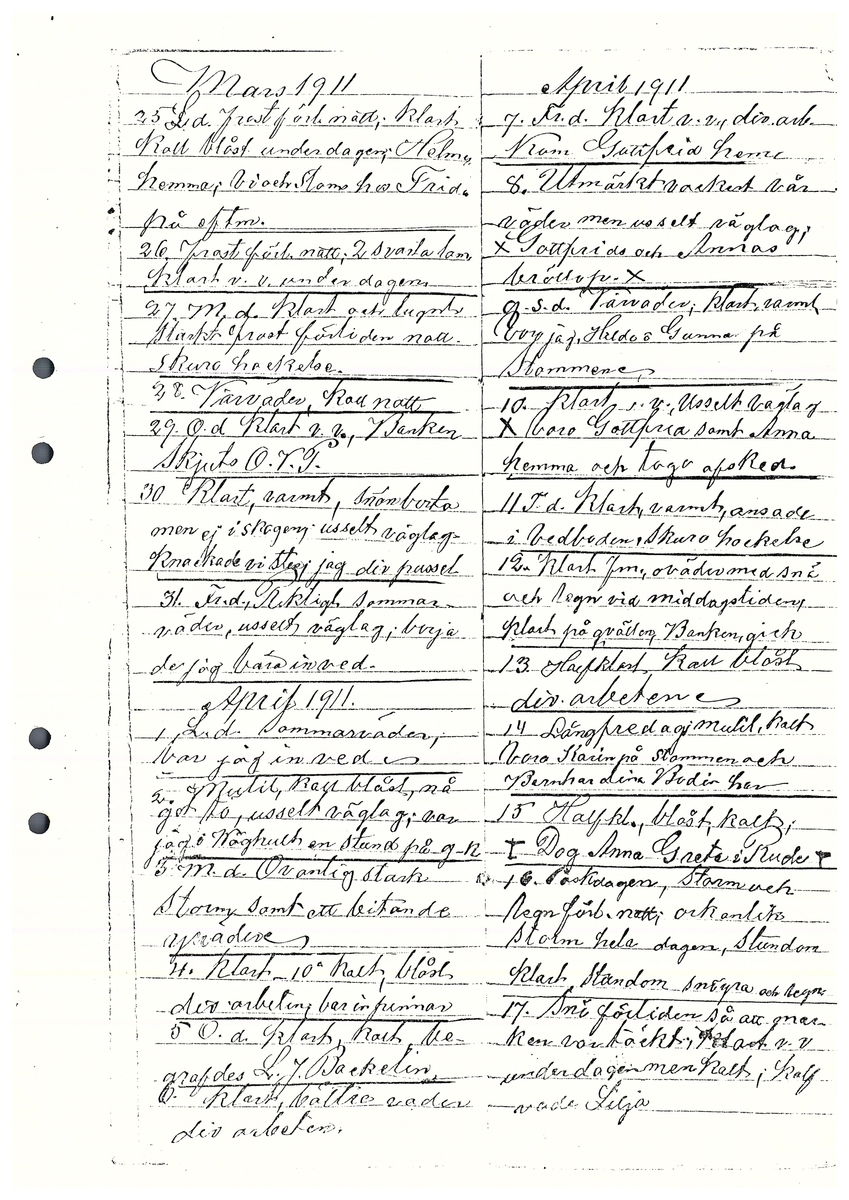 Mars 1911
25 L.d. frost förl. natt; klart
kall blåst under dagen; Helmer
hemma; vi och Stoms hos Frida
på eftm.
26. frost förl. natt; 2 svarta lam
klart v. v. under dagen
27. M. d. klart och lugnt
stark frost förliden natt.
skuro hackelse.
28. Vårväder, kall natt
29. O.d klart v. v., Banken
skjuts O.V.P.
30 klart, varmt, snön borta
men ej i skogen; usselt väglag
knackade vi sten; jag div. pussel
31. Fr.d, Riktigt sommar-
väder, usselt väglag; börja
de jag bära in ved.
April 1911.
1, L.d. sommarväder,
bar jag in ved
2. Mulil, kall blåst, nå
got tö, usselt väglag; var
jag i Häghult en stund på q-n
3 M. d. Ovanlig stark
storm samt ett bitande
yrväder
4. klart -10° kalt, blåst
div. arbeten, bar in pinnar
5 O. d. klart, kalt, be-
grafdes L. J. Backelin,
6. klart, bättre väder
div arbeten.
April 1911
7. Fr.d. klart v. v., div. arb.
kom Gottfrid hem
8. Utmärkt vackert vår
väder men usselt väglag;
X Gottfrids och Annas
bröllop. X
9. S.d. Vårväder; klart, varmt
voro jag, Hilda o Gunna på
Stommene
10. klart, v. v., usselt väglag
X voro Gottfrid samt Anna
hemma och togo afsked.
11 T. d. klart, varmt, ansade
i vedboden, skuro hackelse
12. klart fm., oväder med snö
och regn vid middagstiden,
klart på qvällen Banken, gick
13. Halfklart, kall blåst
div. arbeten
14 Långfredag; mulil, kalt
voro Karin på Stommen och
Bernhardina Bodin här
15 Halfkl., blåst, kalt;
† Dog Anna Greta i Rude †
16. Påskdagen, storm och
regn förl. natt; orkanlik
storm hela dagen, stundom
klart stundom snöyra och regn
17. Snö förliden så att mar-
ken var täckt; klart v. v
under dagen men kalt; kalf
vade Lilja